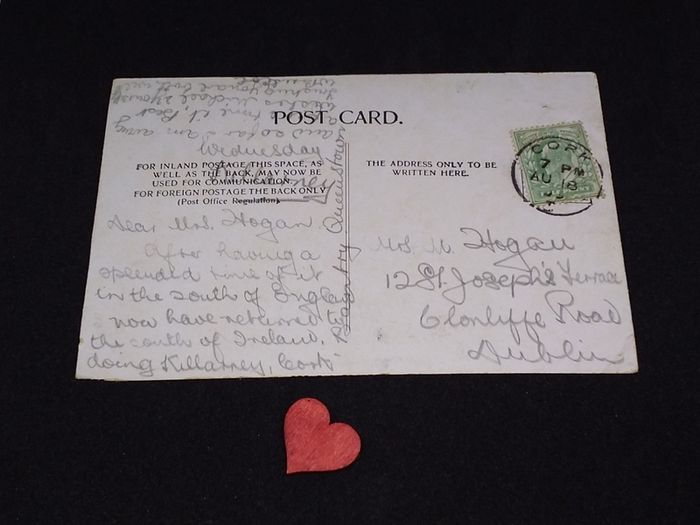 POST CARD.
FOR INLAND POSTAGE THIS SPACE, AS
WELL AS THE BACK, MAY NOW BE
USED FOR COMMUNICATION.
FOR FOREIGN POSTAGE THE BACK ONLY
(Post Office Regulation).
THE ADDRESS ONLY TO BE
WRITTEN HERE.
CORK
7 PM
AU 18
Wednesday
Dear Mrs. Hogan.
After having a
splended time of it
in the south of England
now have returned to
the south of Ireland.
doing Killarney, Cork
Bantry Queenstown
and so far I am
time it. Best
wishes Michael
hoping you are both well
Mrs M. Hogan
12 St. Joseph's Terrace
Clonliffe Road
Dublin